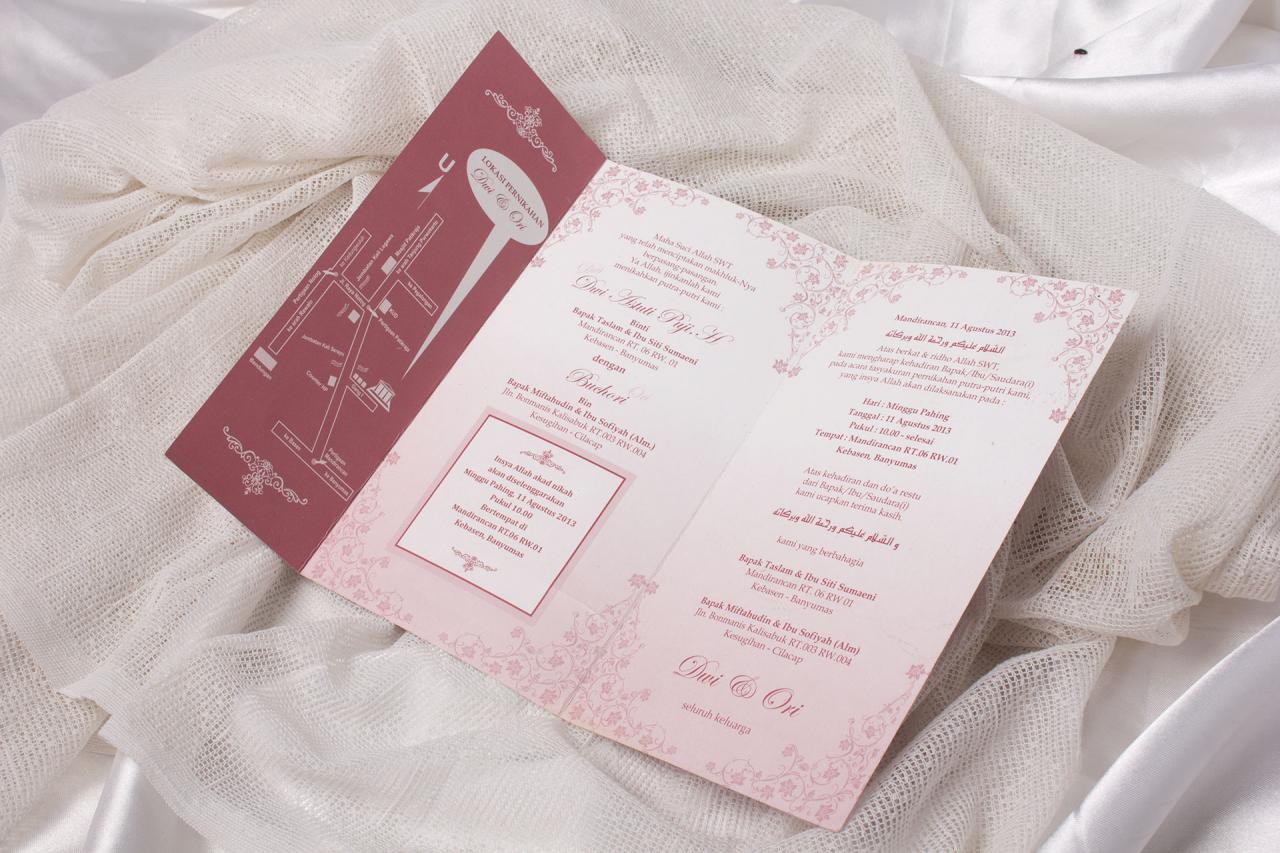 U
LOKASI PERNIKAHAN
Dwi & Ori
ke Banyumas
Maha Suci Allah SWT
yang telah menciptakan makhluk-Nya
berpasang-pasangan.
Ya Allah, ijinkanlah kami
menikahkan putra-putri kami :
Dwi
Dwi Astuti Puji. H
Binti
Bapak Taslam & Ibu Siti Sumaeni
Mandirancan RT. 06 RW. 01
Kebasen - Banyumas
dengan
Buchori
Ori
Bin
Bapak Miftahudin & Ibu Sofiyah (Alm.)
Jln. Bonmanis Kalisabuk RT.003 RW.004
Kesugihan - Cilacap
Insya Allah akad nikah
akan diselenggarakan
Minggu Pahing, 11 Agustus 2013
Pukul 10.00
Bertempat di
Mandirancan RT.06 RW.01
Kebasen, Banyumas
Mandirancan, 11 Agustus 2013
السلام عليكم ورحمة الله وبركاته
Atas berkat & ridho Allah SWT,
kami mengharap kehadiran Bapak/Ibu/Saudara(i)
pada acara tasyakuran pernikahan putra-putri kami,
yang insya Allah akan dilaksanakan pada :
Hari : Minggu Pahing
Tanggal : 11 Agustus 2013
Pukul : 10.00 - selesai
Tempat : Mandirancan RT.06 RW.01
Kebasen, Banyumas
Atas kehadiran dan do'a restu
dari Bapak/Ibu/Saudara(i)
kami ucapkan terima kasih.
و السلام عليكم ورحمة الله وبركاته
kami yang berbahagia
Bapak Taslam & Ibu Siti Sumaeni
Mandirancan RT. 06 RW 01
Kebasen - Banyumas
Bapak Miftahudin & Ibu Sofiyah (Alm)
Jln. Bonmanis Kalisabuk RT.003 RW.004
Kesugihan - Cilacap
Dwi & Ori
seluruh keluarga